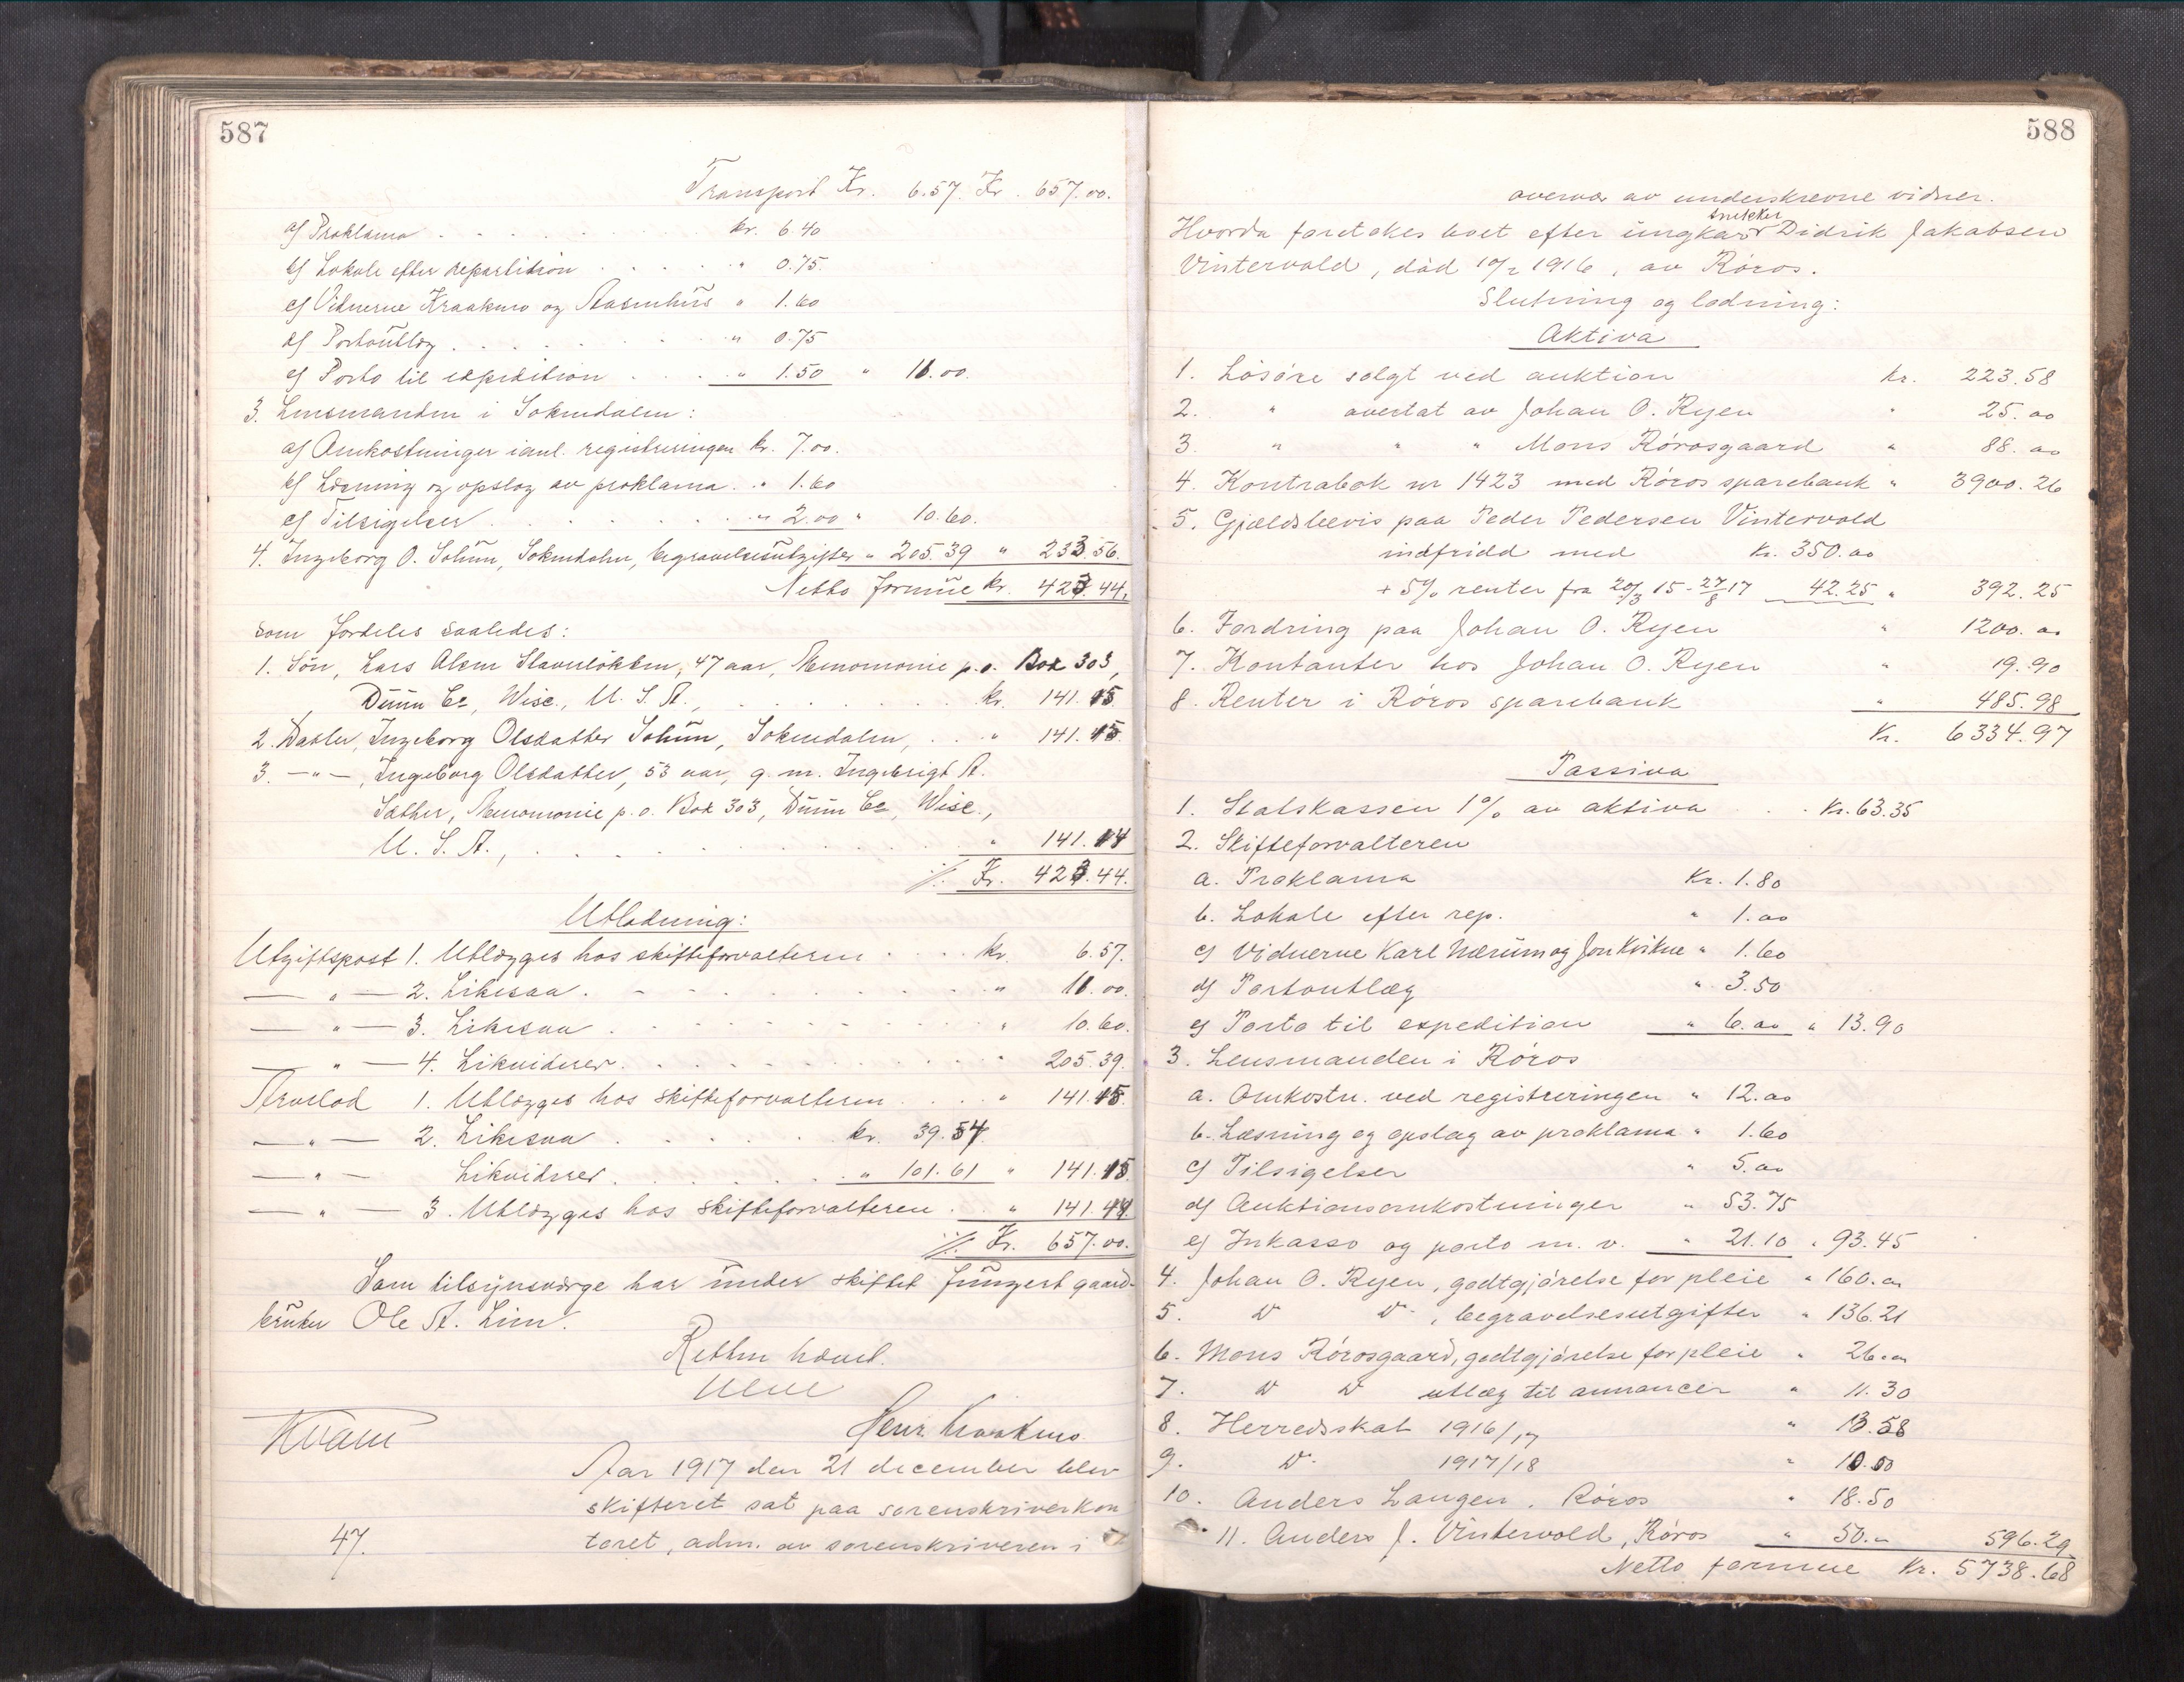 587
Transport Kr. 6.57. Kr. 657.00.
a) Proklama . . . . . kr. 6.40
b) Lokale efter repartition . . . . . " 0.75.
c) Vidnerne Kraakmo og Aasenhus " 1.60
d) Portoutlæg . . . . . " 0.75
e) Porto til expedition . . . . " 1.50 " 11.00.
3. Lensmanden i Soknedalen:
a) Omkostninger i anl. registreringen kr. 7.00.
b) Læsning og opslag av proklama . " 1.60
c) Tilsigelser . . . . . " 2.00 " 10.60.
4. Ingeborg O. Solum, Soknedalen, begravelsesutgifter " 205.39 " 233.56.
Netto formue kr. 423.44.
som fordeles saaledes:
1. Søn, Lars Olsen Slavensløkken, 47 aar, Menomonie p.o. Box 303,
Dunn Co, Wisc., U. S. A., . . . . . kr. 141.15.
2. Datter, Ingeborg Olsdatter Solum, Soknedalen, . . " 141.15.
3. —"—, Ingeborg Olsdatter, 53 aar, g. m. Ingebrigt A.
Sæther, Menomonie p. o. Box 303, Dunn Co, Wisc.,
U. S. A., . . . . . " 141.14
./. Kr. 423.44.
Utlodning:
Utgiftspost 1. Utlægges hos skifteforvalteren . . . . kr. 6.57.
— " — 2. Likesaa . . . . . " 11.00.
— " — 3. Likesaa . . . . . " 10.60.
— " — 4. Likviderer . . . . . " 205.39.
Arvelod 1. Utlægges hos skifteforvalteren . . . . " 141.15.
— " — 2. Likesaa . . . . . kr. 39.54.
— " — Likviderer . . . . . " 101.61 " 141.15
— " — 3. Utlægges hos skifteforvalteren . . " 141.14.
./. Kr. 657.00.
Som tilsynsværge har under skiftet fungert gaard-
bruker Ole A. Lim.
Retten hævet.
Kvam
Henr. Kraakmo
Aar 1917 den 21 december blev
skifteret sat paa sorenskriverkon
toret, adm. av sorenskriveren i
47.
588
overvær av underskrevne vidner.
snekker
Hvorda foretokes boet efter ungkar Didrik Jakobsen
Vintervold, død 10/2 1916, av Røros.
Slutning og lodning:
Aktiva
1. Løsøre solgt ved auktion kr. 223.58
2. " overtat av Johan O. Ryen " 25.00
3. " " " Mons Rørosgaard " 88.00
4. Kontrabok nr 1423 med Røros sparebank " 3900.26
5. Gjældsbevis paa Peder Pedersen Vintervold
indfridd med Kr. 350.00
+ 5% renter fra 20/3 15 - 27/8 17 42.25 " 392.25
6. Fordring paa Johan O. Ryen " 1200.00
7. Kontanter hos Johan O. Ryen " 19.90
8. Renter i Røros sparebank " 485.98
Kr. 6334.97
Passiva
1. Statskassen 1% av aktiva . . Kr. 63.35
2. Skifteforvalteren
a. Proklama Kr. 1.80
b. Lokale efter rep. " 1.00
c) Vidnerne Karl Nærum og Jon Kvikne " 1.60
d) Portoutlæg " 3.50
e) Porto til expedition " 6.00 " 13.90
3. Lensmanden i Røros
a. Omkostn. ved registreringen " 12.00
b. Læsning og opslag av proklama " 1.60
c) Tilsigelser " 5.00
d) Auktionsomkostninger " 53.75
e) Inkasso og porto m. v. " 21.10 " 93.45
4. Johan O. Ryen, godtgjørelse for pleie " 160.00
5. D D , begravelsesutgifter " 136.21
6. Mons Rørosgaard, godtgjørelse for pleie " 26.00
7. D D utlæg til annoncer " 11.30
8. Herredsskat 1916/17 " 13.58
9. D 1917/18 " 10.00
10. Anders Langen, Røros " 18.50
11. Anders J. Vintervold, Røros " 50.00 596.29
Netto formue Kr. 5738.68